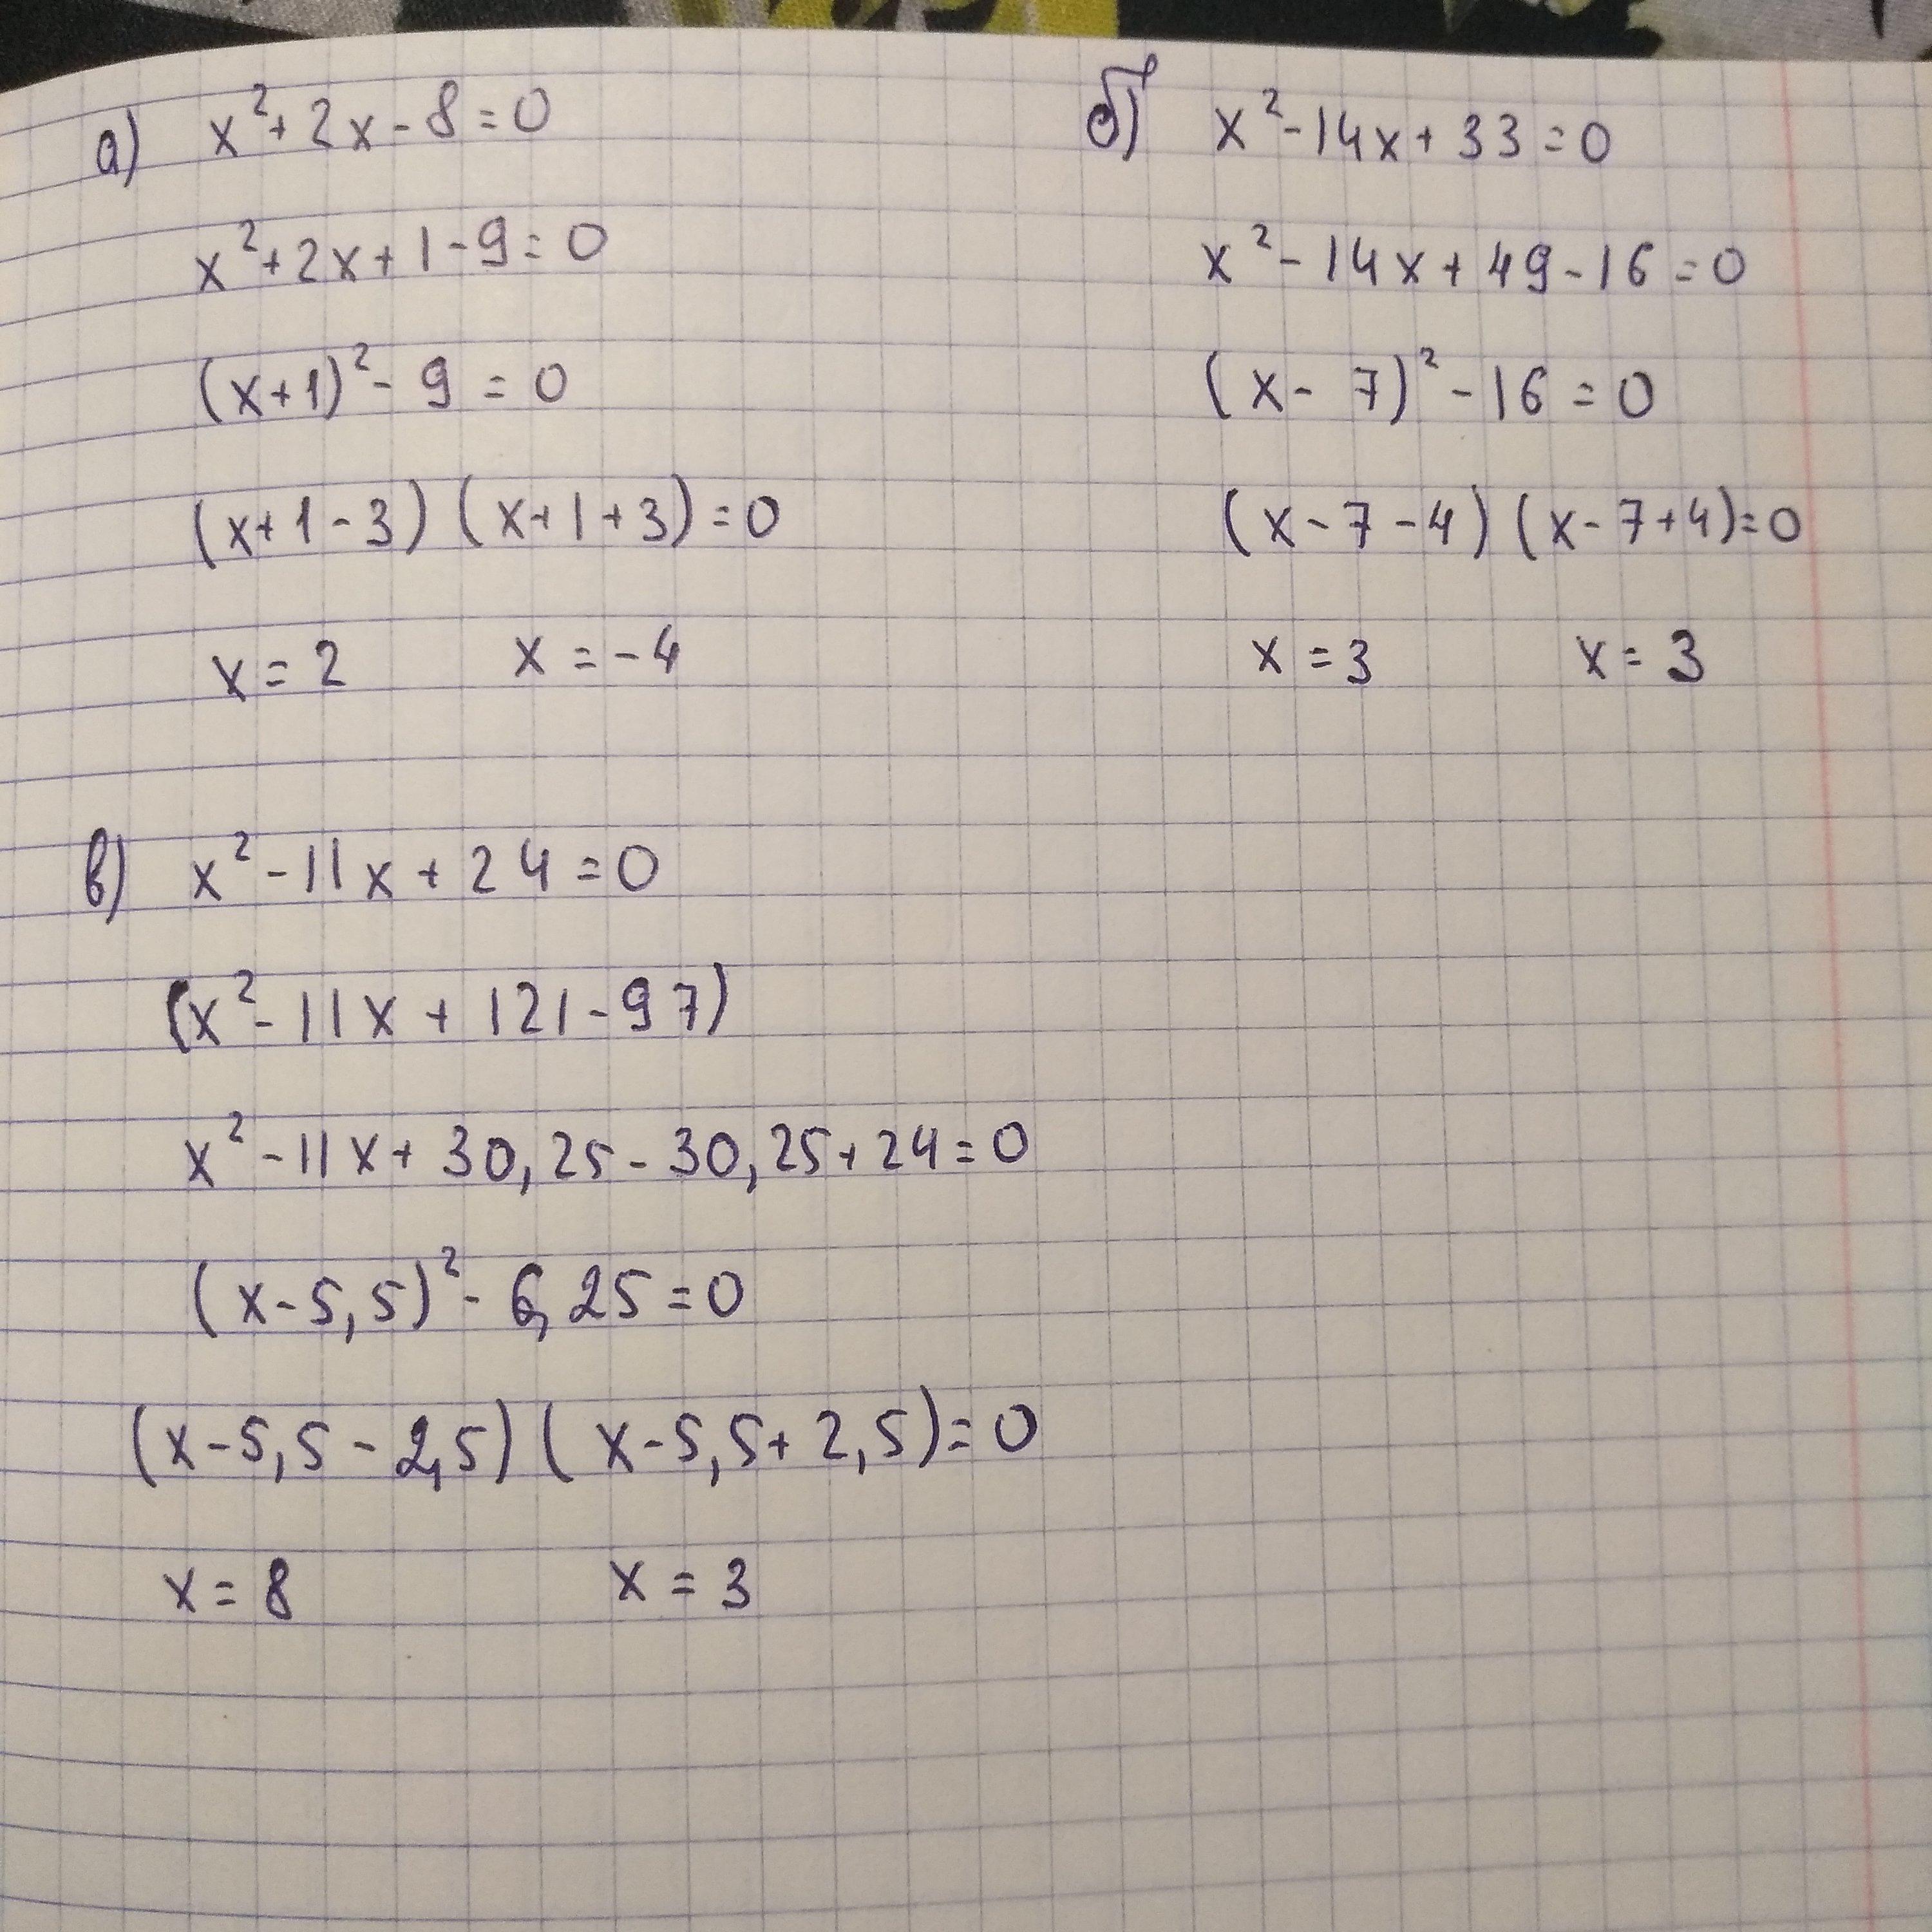 а) x² + 2x - 8 = 0
x² + 2x + 1 - 9 = 0
(x + 1)² - 9 = 0
(x + 1 - 3) (x + 1 + 3) = 0
x = 2 x = -4
б) x² - 14x + 33 = 0
x² - 14x + 49 - 16 = 0
(x - 7)² - 16 = 0
(x - 7 - 4) (x - 7 + 4) = 0
x = 3 x = 3
в) x² - 11x + 24 = 0
(x² - 11x + 121 - 97)
x² - 11x + 30,25 - 30,25 + 24 = 0
(x - 5,5)² - 6,25 = 0
(x - 5,5 - 2,5) (x - 5,5 + 2,5) = 0
x = 8 x = 3